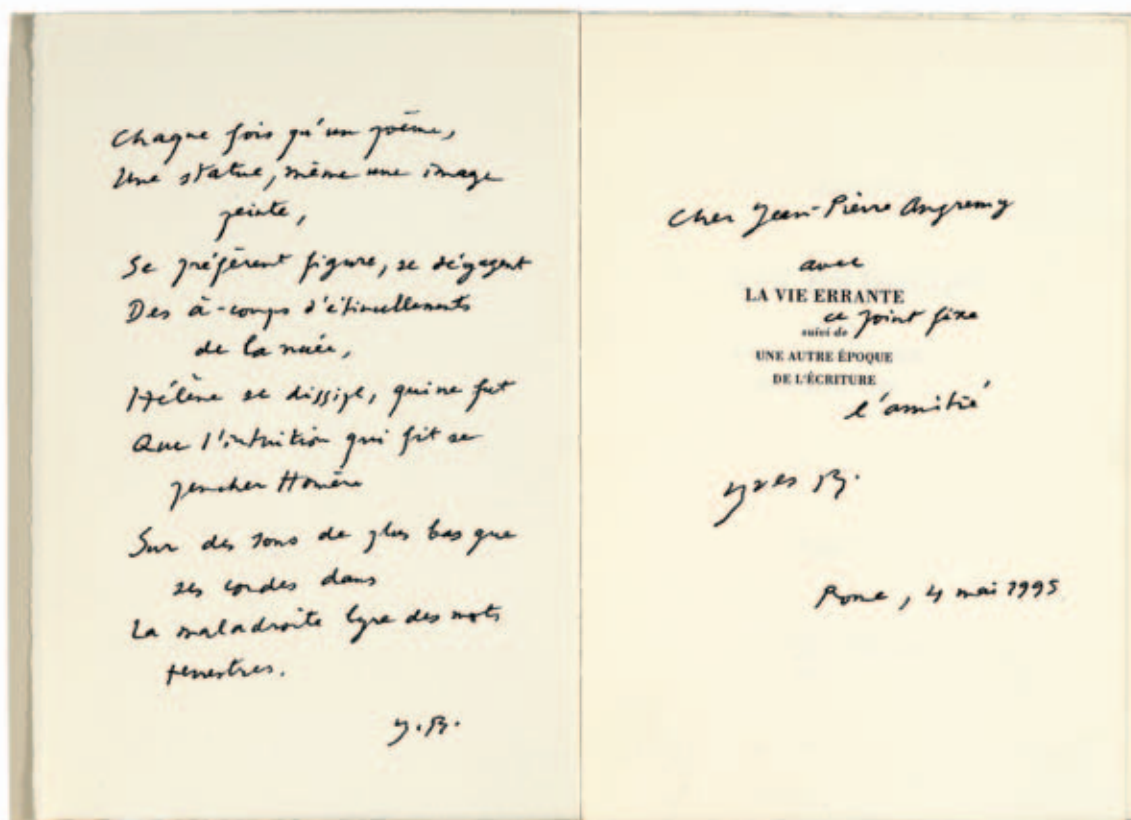 Chaque fois qu'un poème,
Une statue, même une image
peinte,
Se préfèrent figure, se dégagent
Des à-coups d'étincellements
de la nuée,
Hélène se dissipe, qui ne fut
Que l'intuition qui fit se
pencher Homère
Sur des sons de plus bas que
ses cordes dans
La maladroite lyre des mots
terrestres.
Y.B.
Cher Jean-Pierre Angremy
avec
LA VIE ERRANTE
ce point fixe
suivi de
UNE AUTRE ÉPOQUE
DE L'ÉCRITURE
l'amitié
Yves B.
Rome, 4 mai 1995